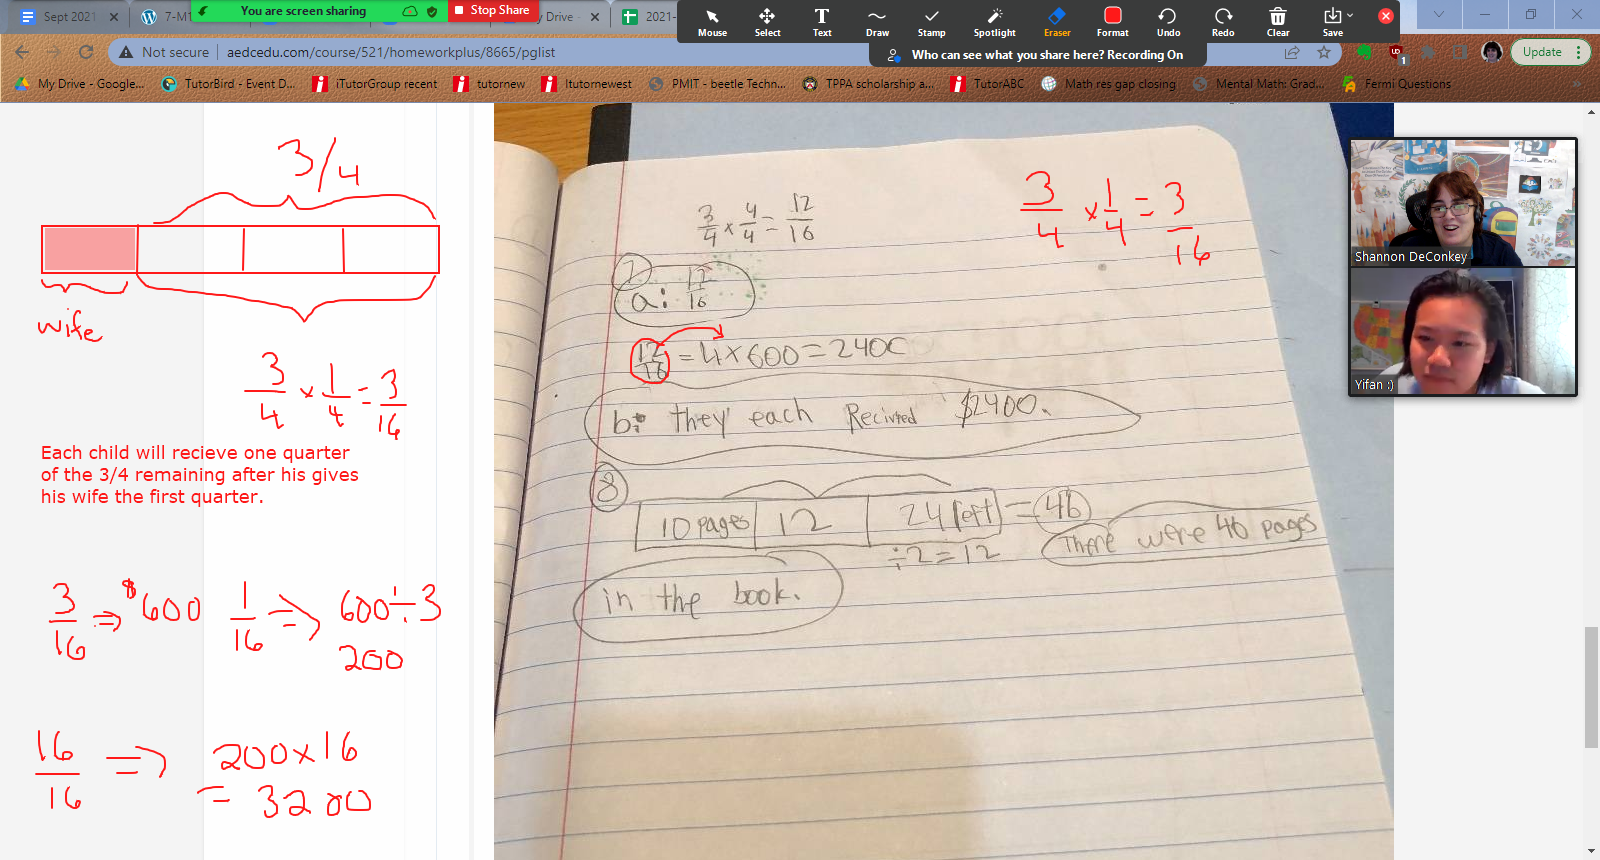 Sept 2021
7-M1
You are screen sharing
Stop Share
My Drive -
2021-
Mouse
Select
Text
Draw
Stamp
Spotlight
Eraser
Format
Undo
Redo
Clear
Save
Who can see what you share here? Recording On
Not secure
aedcedu.com/course/521/homeworkplus/8665/pglist
1
Update
My Drive - Google...
TutorBird - Event D...
iTutorGroup recent
tutornew
Itutornewest
PMIT - beetle Techn...
TPPA scholarship a...
TutorABC
Math res gap closing
Mental Math: Grad...
Fermi Questions
»
3/4
wife
3/4 × 1/4 = 3/16
Each child will recieve one quarter
of the 3/4 remaining after his gives
his wife the first quarter.
3/16 => $600
1/16 => 600÷3
200
16/16 => 200×16
= 3200
3/4 × 4/4 = 12/16
3/4 × 1/4 = 3/16
a: 12/16
12/16 = 4 × 600 = 2400
b: they each Recivied $2400.
8
10 pages 12 24 left = 46
÷2=12
There were 46 pages
in the book.
Shannon DeConkey
Yifan :)